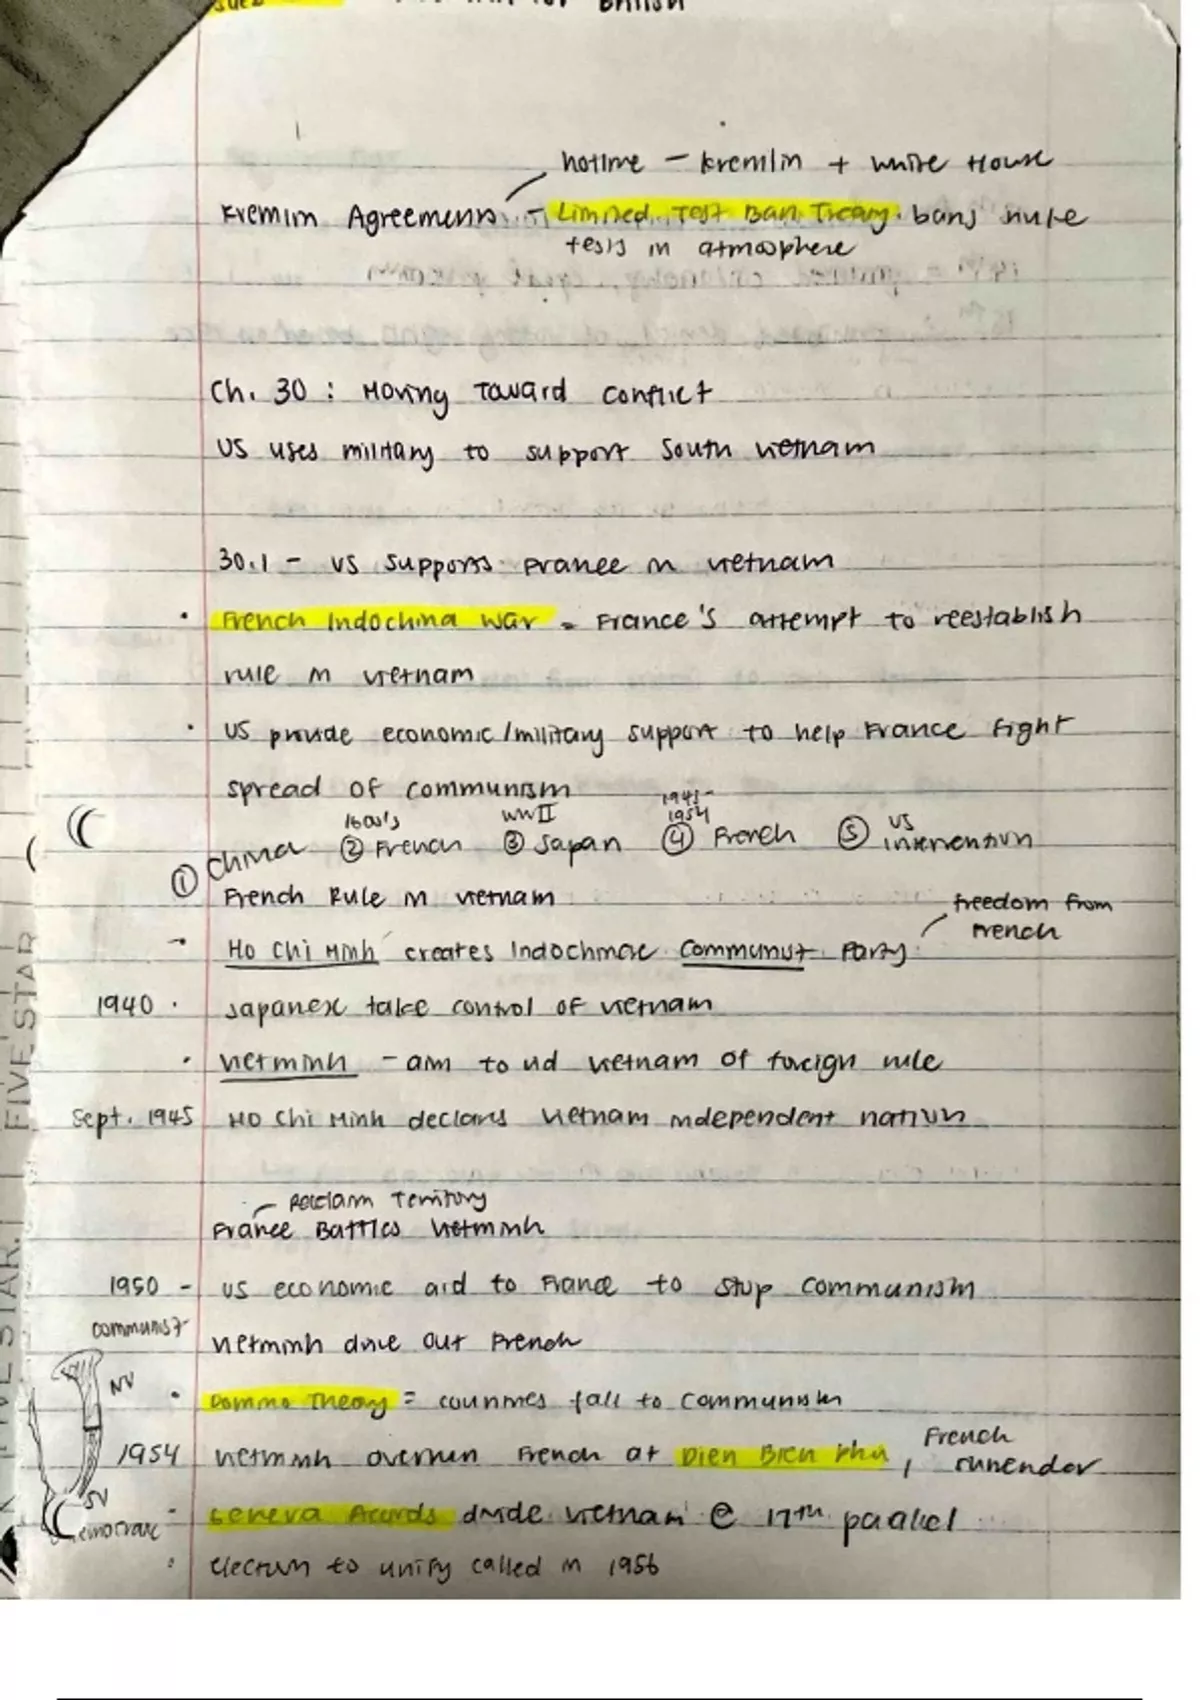 hotline - Kremlin + White House
Kremlin Agreements - Limited Test Ban Treaty. bans nuke
tests in atmosphere
Ch. 30 : Moving Toward Conflict
US uses military to support South Vietnam
30.1 - US supports France in Vietnam
• French Indochina War = France's attempt to reestablish
rule in Vietnam
• US provide economic/military support to help France fight
spread of communism
1800's WWII 1945- 1954 US
① China ② French ③ Japan ④ French ⑤ intervention
French Rule in Vietnam
freedom from
French
- Ho Chi Minh creates Indochinese Communist Party
1940 • Japanese take control of Vietnam
• Vietminh - aim to rid Vietnam of foreign rule
Sept. 1945 Ho Chi Minh declares Vietnam independent nation
- Reclaim Territory
France Battles Vietminh
1950 - US economic aid to France to stop communism
communist
Vietminh drive out French
NV
• Domino Theory = countries fall to communism
French
1954 Vietminh overrun French at Dien Bien Phu, surrender
SV
Democratic
• Geneva Accords divide Vietnam @ 17th paallel
• election to unify called in 1956
FIVE STAR
FIVE STAR